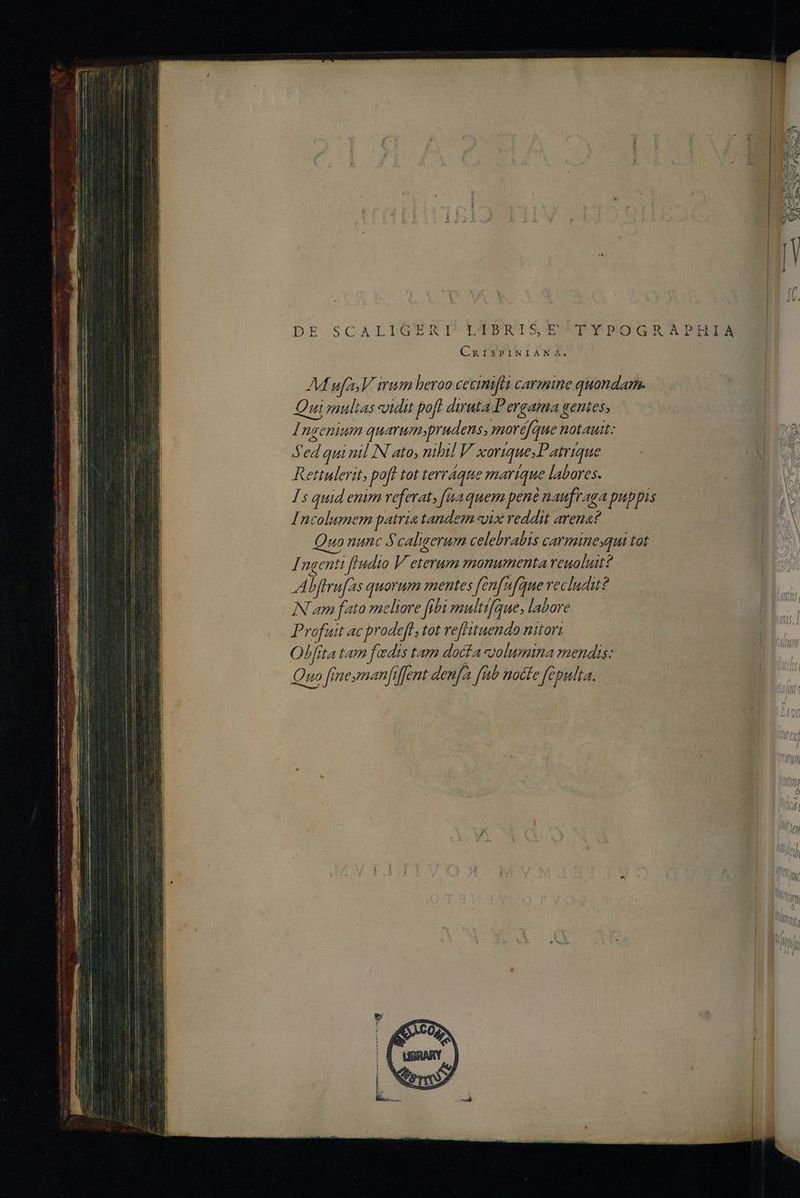 DE SCALIGERI LIBRIS, E TYPOGRAPHIA
CRISPINIANA.
Musa, Virum heroo cecinisti carmine quondam.
Qui multas vidit post diruta Pergama gentes,
Ingenium quarum, prudens, morésque notauit:
Sed qui nil Nato, nihil Vxorique, Patrique
Rettulerit, post tot terráque marique labores.
Is quid enim referat, sua quem penè naufraga puppis
Incolumem patriæ tandem vix reddit arenæ?
Quo nunc Scaligerum celebrabis carmine, qui tot
Ingenti studio Veterum monumenta reuoluit?
Abstrusas quorum mentes sensúsque recludit?
Nam fato meliore sibi multisque, labore
Profuit ac prodest, tot restituendo nitori
Obsita tam fœdis tam docta volumina mendis:
Quo sine, mansissent densa sub nocte sepulta.
WELLCOME
LIBRARY
INSTITUTE